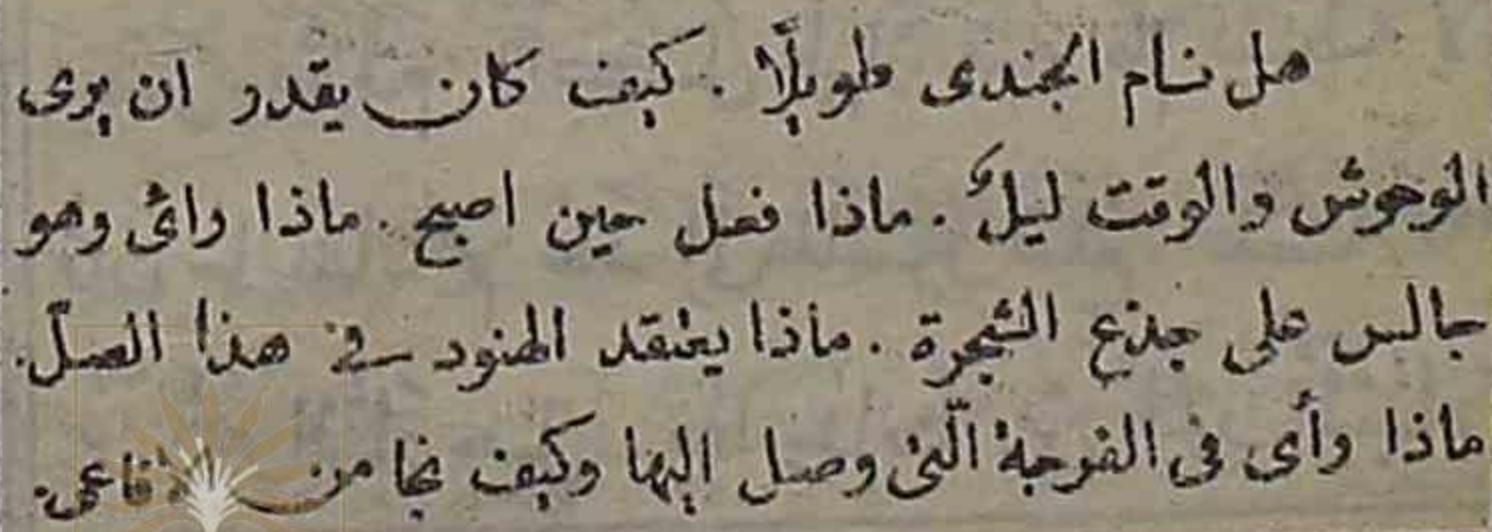 هل نام الجندى طويلًا . كيف كان يقدر ان يرى
الوحوش والوقت ليلٌ . ماذا فعل حين اصبح . ماذا رائ وهو
جالس على جذع الشجرة . ماذا يعتقد الهنود في هذا الصلّ .
ماذا رأى فى الفرجة الّتى وصل اليها وكيف نجا من الافاعى .